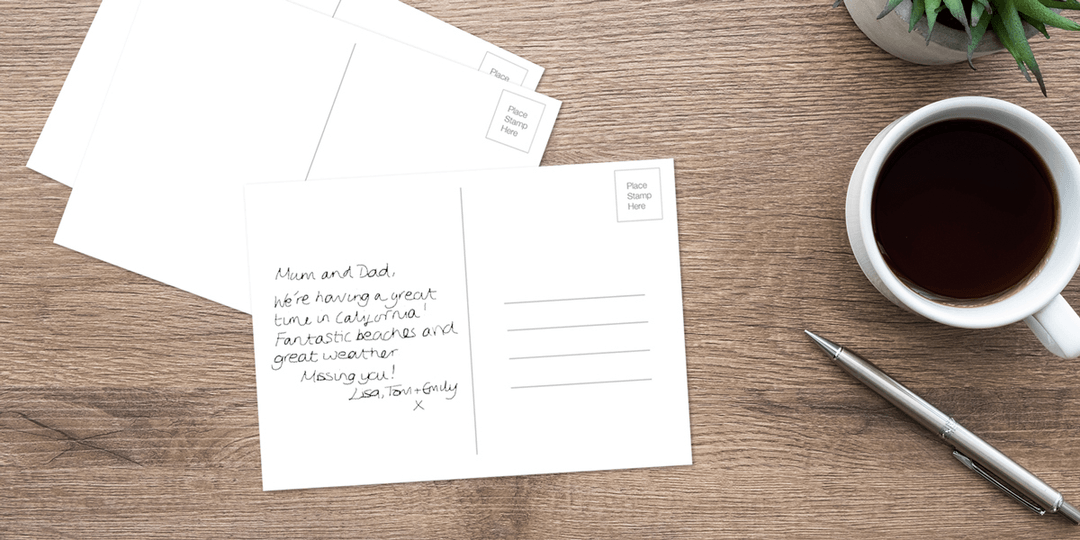 Place
Place
Stamp
Here
Place
Stamp
Here
Mum and Dad,
We're having a great
time in California!
Fantastic beaches and
great weather
Missing you!
Lisa, Tom + Emily
X